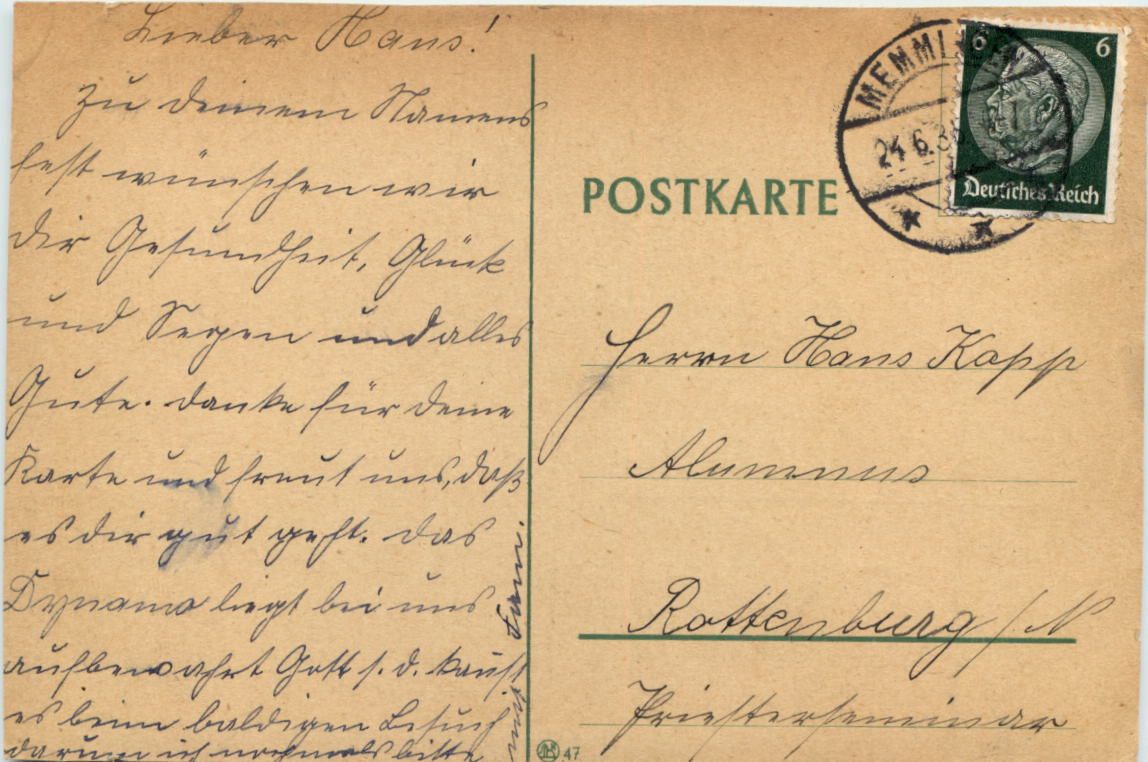 Lieber Hans!
Zu deinem Namens
fest wünschen wir
dir Gesundheit, Glück
und Segen und alles
Gute. danke für deine
Karte und freut uns, daß
es dir gut geht. das
Dynamo liegt bei uns
aufbewahrt Gott s. d. kannst
es beim baldigen Besuch
darum ich nochmals bitte
POSTKARTE
MEMMINGEN
24.6.36
6
6
Deutsches Reich
Herrn Hans Kopp
Alumnus
Rottenburg / N
Priesterseminar
47